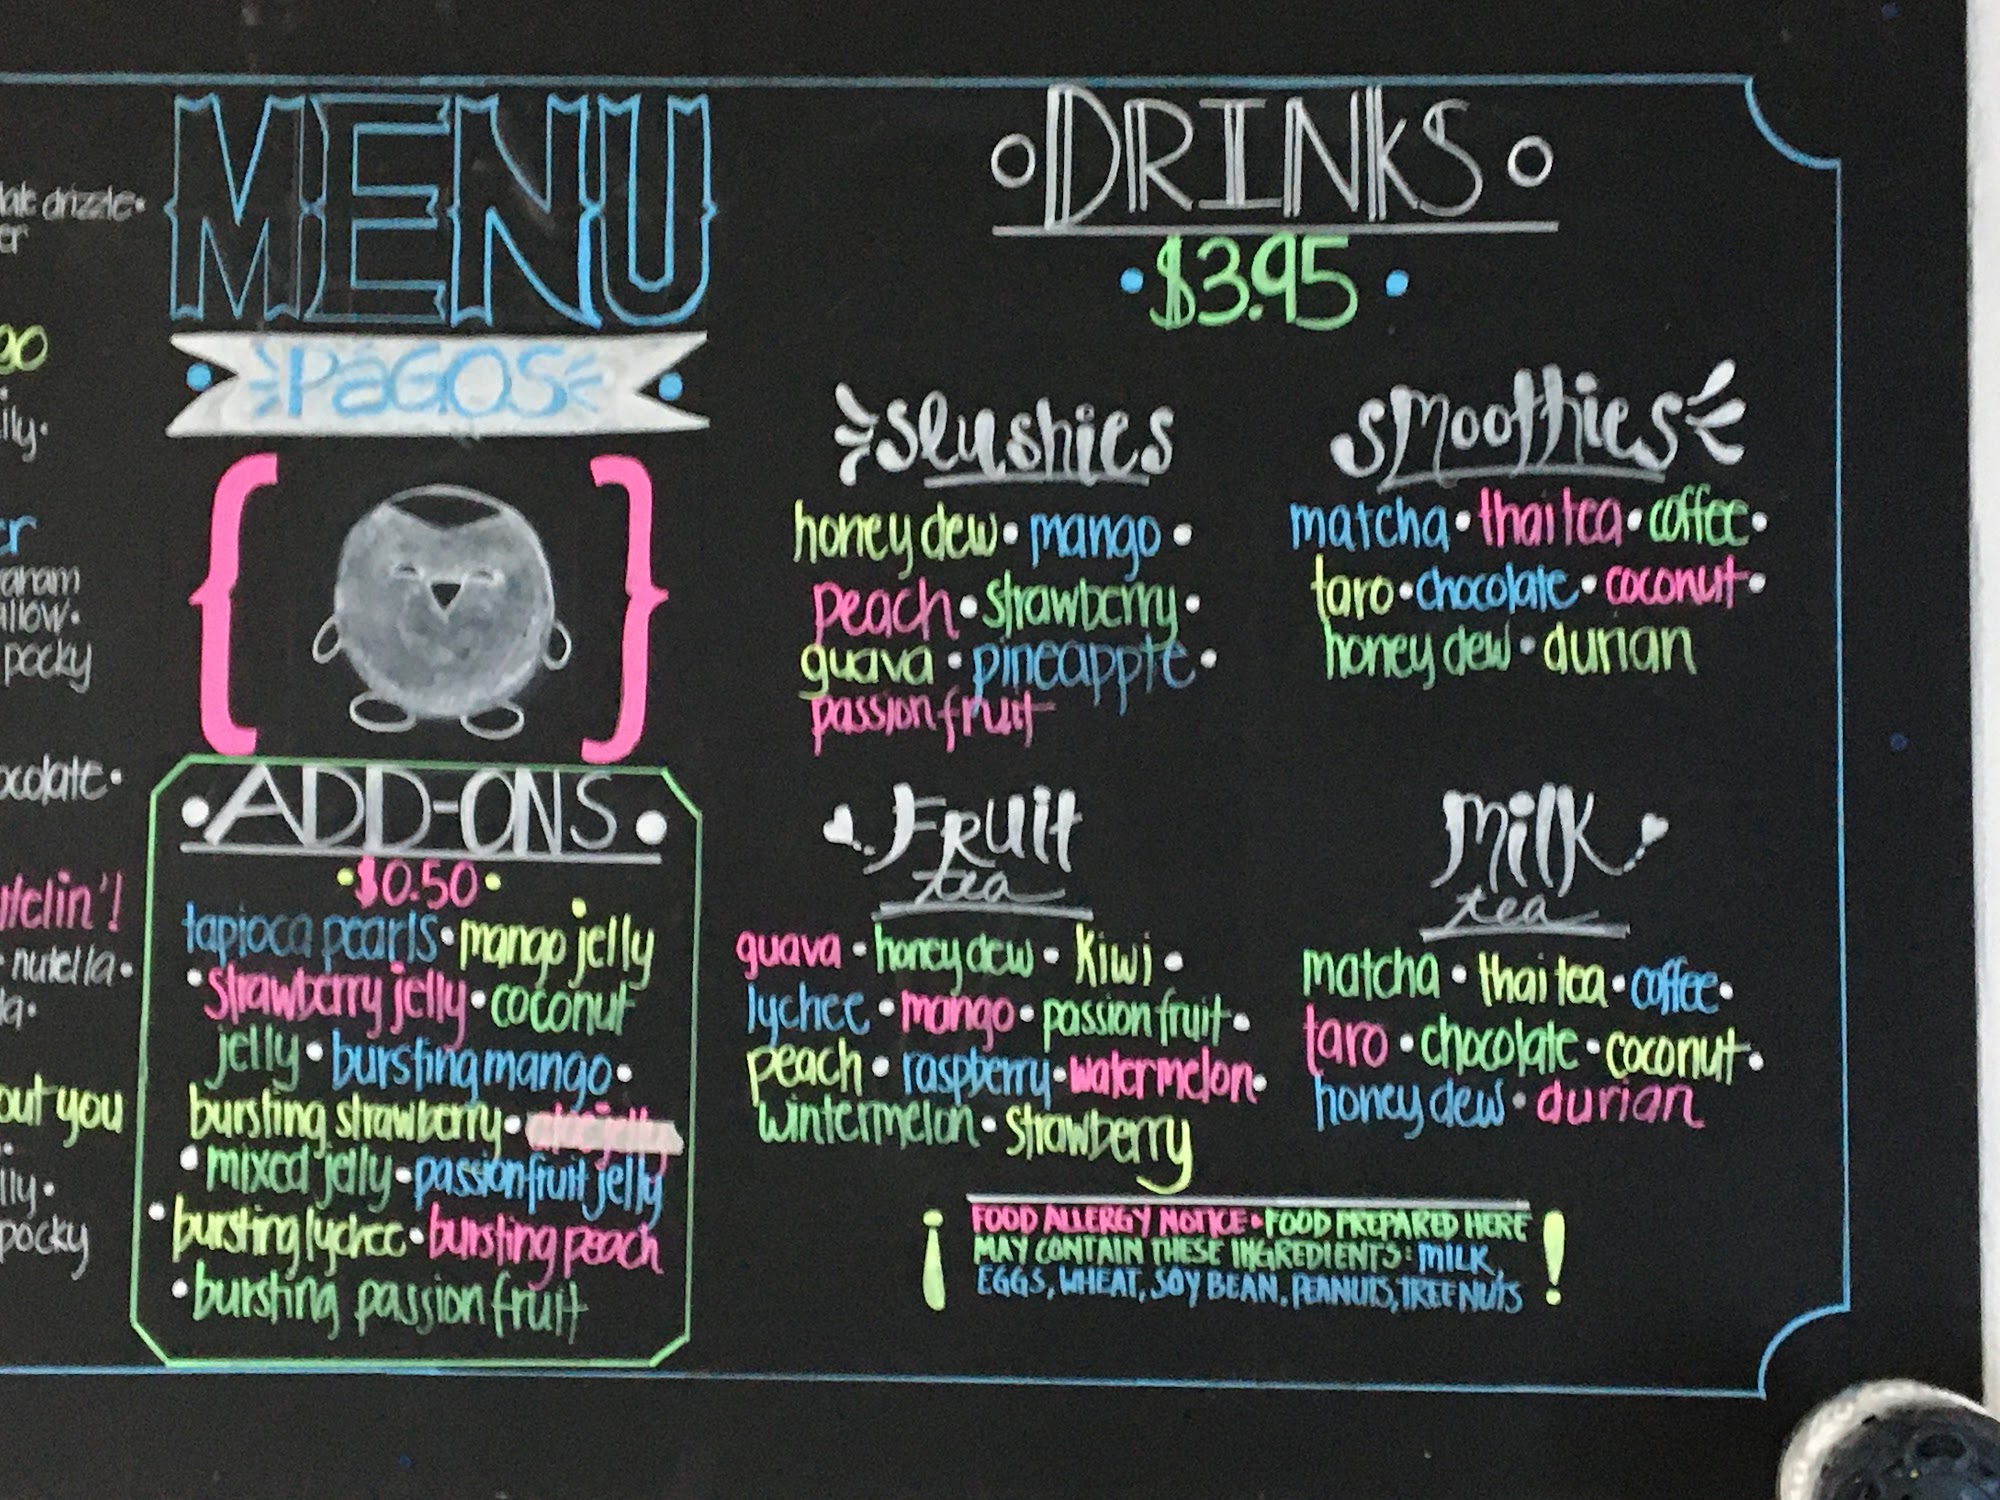 drizzle•
pocky
nutella•
out you
pocky
MENU
PAGOS
ADD-ONS
•$0.50•
tapioca pearls•mango jelly
•strawberry jelly•coconut
jelly•bursting mango•
bursting strawberry•
•mixed jelly•passionfruit jelly
•bursting lychee•bursting peach
•bursting passion fruit
DRINKS
•$3.95•
slushies
honey dew•mango•
peach•strawberry•
guava•pineapple•
passion fruit
smoothies
matcha•thai tea•coffee•
taro•chocolate•coconut•
honey dew•durian
Fruit
tea
guava•honey dew•kiwi•
lychee•mango•passion fruit•
peach•raspberry•watermelon•
wintermelon•strawberry
Milk
tea
matcha•thai tea•coffee•
taro•chocolate•coconut•
honey dew•durian
¡FOOD ALLERGY NOTICE•FOOD PREPARED HERE!
MAY CONTAIN THESE INGREDIENTS: MILK,
EGGS, WHEAT, SOY BEAN, PEANUTS, TREE NUTS